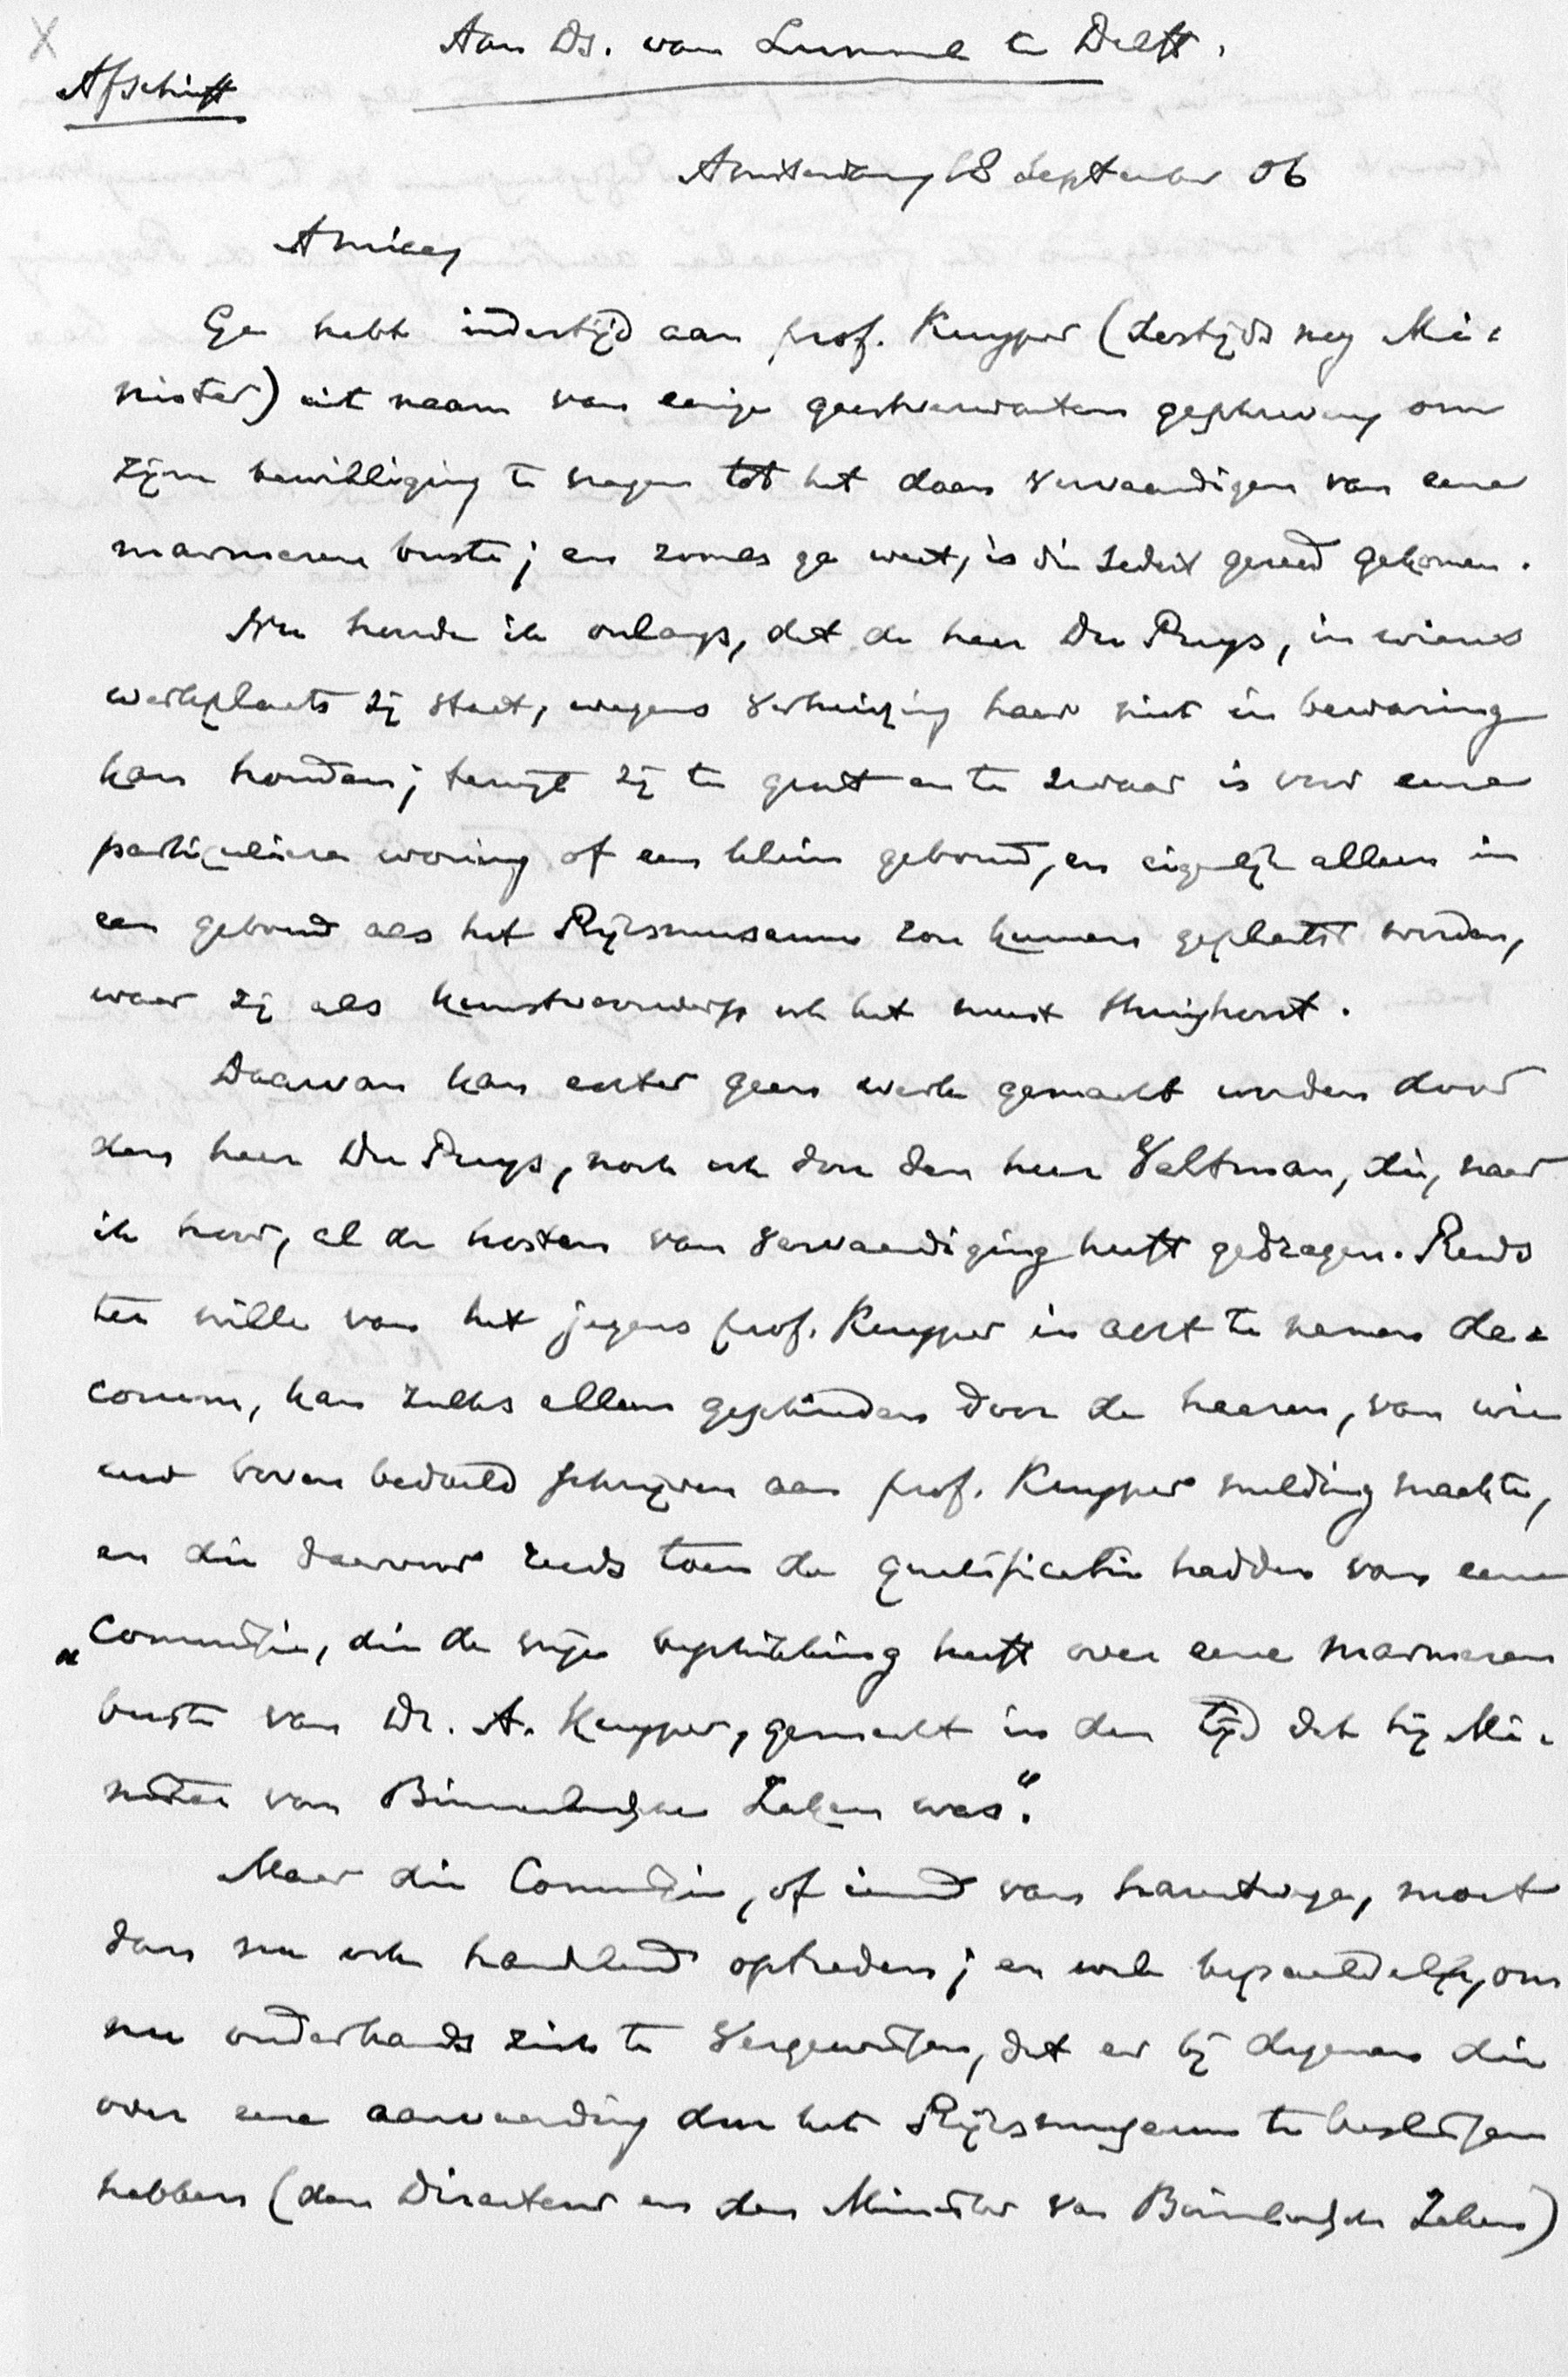 X
Aan Ds. van Lummel c Delft.
Afschrift
Amsterdam 18 September 06
Amice,
Ge hebt indertijd aan prof. Kuyper (destijds nog Mi-
nister) uit naam van eenige geestverwanten geschreven, om
zijne bewilliging te vragen tot het doen vervaardigen van eene
marmeren buste; en zooals ge weet, is die sedert gereed gekomen.
Nu hoorde ik onlangs, dat de heer Du Puys, in wiens
werkplaats zij staat, wegens verhuizing haar niet in bewaring
kan houden; terwijl zij te groot en te zwaar is voor eene
particuliere woning of een klein gebouw, en eigenlijk alleen in
een gebouw als het Rijksmuseum zou kunnen geplaatst worden,
waar zij als kunstvoorwerp ook het meest thuishoort.
Daarvan kan echter geen werk gemaakt worden door
den heer Du Puys, noch ook door den heer Veltman, die, naar
ik hoor, al de kosten van vervaardiging heeft gedragen. Reeds
ter wille van het jegens prof. Kuyper in acht te nemen de-
corum, kan zulks alleen geschieden door de heeren, van wie
uw boven bedoeld schrijven aan prof. Kuyper melding maakte,
en die daarvoor reeds toen de qualificatie hadden van eene
„Commissie, die de vrije beschikking heeft over eene marmeren
buste van Dr. A. Kuyper, gemaakt in den tijd dat hij Mi-
nister van Binnenlandsche Zaken was“.
Maar die Commissie, of iemand van harentwege, moet
dan nu ook handelend optreden; en wel bepaaldelijk, om
nu onderhands zich te vergewissen, dat er bij degenen die
over eene aanvaarding door het Rijksmuseum te beslissen
hebben (den Directeur en den Minister van Binnenlandsche Zaken)